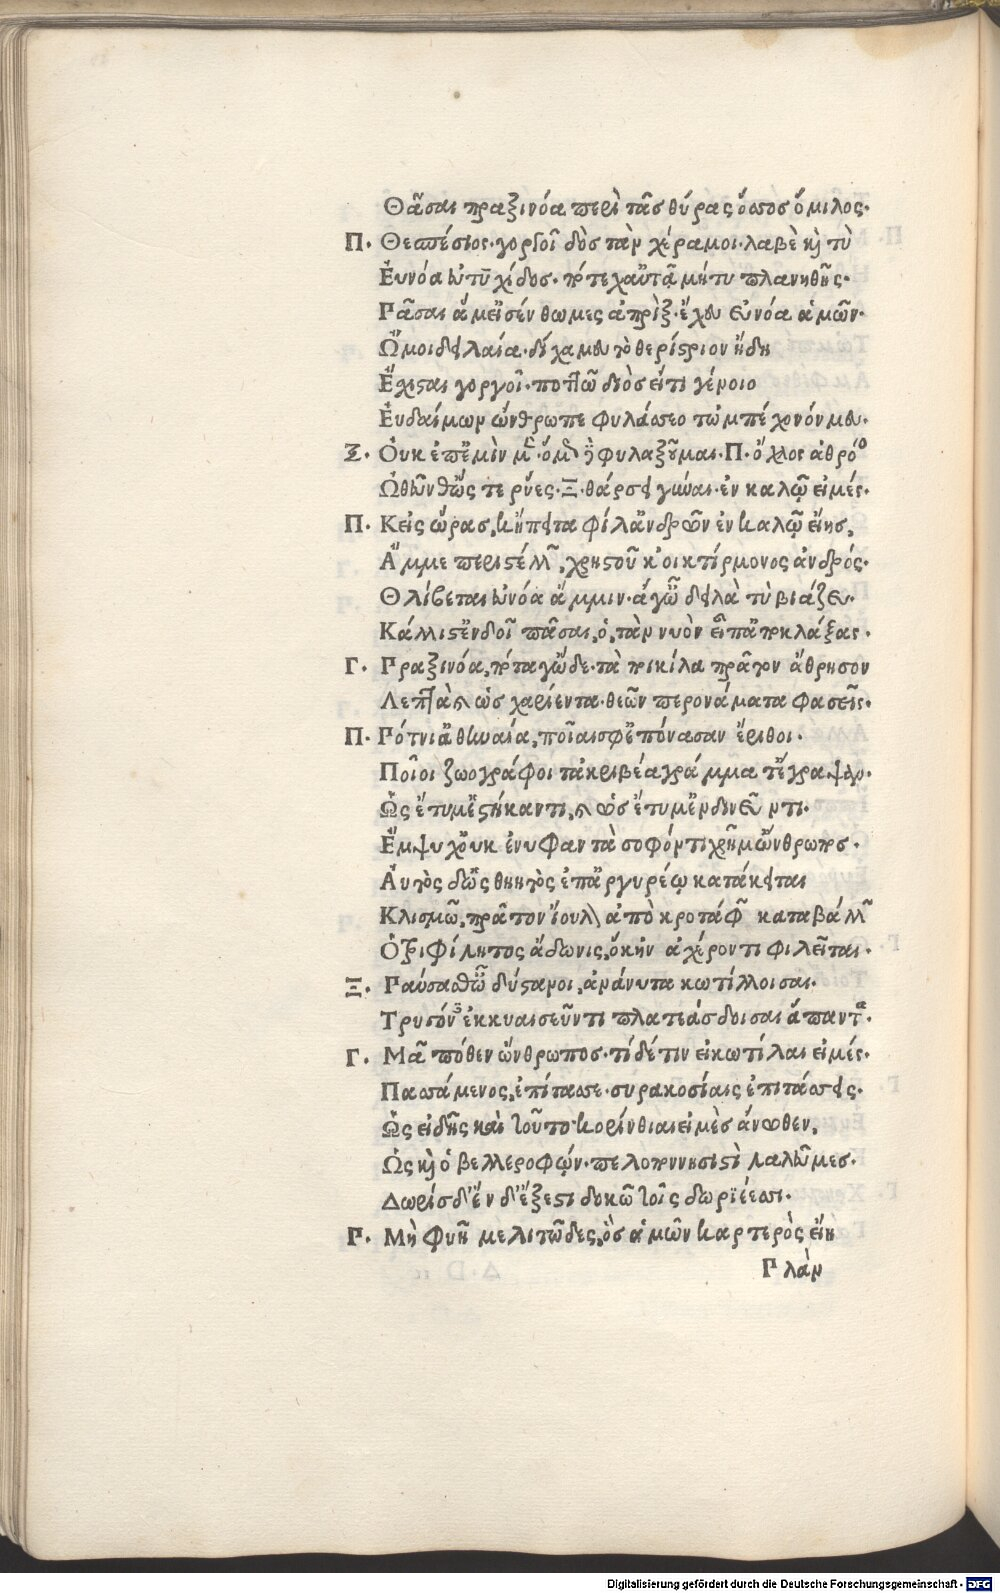 Θᾶσαι πραξινόα περὶ τὰσ θύρας ὅσσοσ ὅμιλος.
Π. Θεσπέσιος. γοργοῖ δὸσ τὰν χέρα μοι. λαβὲ καὶ τὺ
Εὐνόα εὐτυχίδοσ. πότεχ' αὐτᾷ μήτυ πλανηθῇς.
Πᾶσαι ἅμ' εἰσένθωμες ἀπρὶξ. ἔχου εὐνόα ἁμῶν.
Ὤμοι δειλαία. δίχα μου τὸ θερίστριον ἤδη
Ἔχισται γοργοῖ. ποττῶ διὸσ εἴτι γένοιο
Εὐδαίμων ὤνθρωπε φυλάσσεο τὠμπέχονόν μου.
Ξ. Οὐκ ἐπ' ἐμὶν μὲν. ὅμως δὲ φυλαξοῦμαι. Π. ὄχλος ἀθρόος
Ὠθεῦνθ' ὥς τε ρύες. Ξ. θάρσει γύναι. ἐν καλῷ εἰμές.
Π. Κεἰς ὥρας, κἤπειτα φίλ' ἀνδρῶν ἐν καλῷ εἴης,
Ἄμμε περιστέλλων, χρηστοῦ κ' οἰκτίρμονος ἀνδρός.
Θλίβεται εὐνόα ἄμμιν. ἄγ' ὦ δειλὰ τὺ βιάζευ.
Κάλλιστ' ἔνδοῖ πᾶσαι, ὁ, τὰν νυὸν εἶπ' ἀποκλάξας.
Γ. Πραξινόα, πόταγ' ὧδε. τὰ ποικίλα πρᾶτον ἄθρησον
Λεπτὰ καὶ ὡς χαρίεντα. θεῶν περονάματα φασεῖς.
Π. Πότνι' ἀθηναία, ποῖαι σφ' ἐπόνασαν ἔριθοι.
Ποῖοι ζωογράφοι τἀκριβέα γράμματ' ἔγραψαν.
Ὡς ἔτυμ' ἑστήκαντι, καὶ ὡς ἔτυμ' ἐνδινεῦντι.
Ἔμψυχ' οὐκ ἐνυφαντὰ σοφόν τι χρῆμ' ὤνθρωποσ.
Αὐτὸς δ' ὡς θηητὸς ἐπ' ἀργυρέῳ κατάκειται
Κλισμῶ, πρᾶτον ἴουλον ἀπὸ κροτάφων καταβάλλων
Ὁ τριφίλητος ἄδωνις, ὅ κἠν ἀχέροντι φιλεῖται.
Ξ. Παύσασθ' ὦ δύστανοι, ἀνάνυτα κωτίλλοισαι.
Τρυγόνες ἐκκναισεῦντι πλατειάσδοισαι ἅπαντα.
Γ. Μᾶ πόθεν ὤνθρωποσ. τί δέ τιν εἰ κωτίλαι εἰμές.
Πασσάμενος, ἐπίτασσε. συρακοσίαις ἐπιτάσσεις.
Ὡς εἰδῇς καὶ τοῦτο. κορίνθιαι εἰμὲς ἄνωθεν,
Ὡς καὶ ὁ βελλεροφῶν. πελοποννησιστὶ λαλεῦμες.
Δωρίσδ' ἔν δ' ἔξεστι δοκῶ τοῖς δωριέεσσι.
Π. Μὴ φυῇ μελιτῶδες, ὃσ ἁμῶν καρτερὸς εἴη
Πλὰν